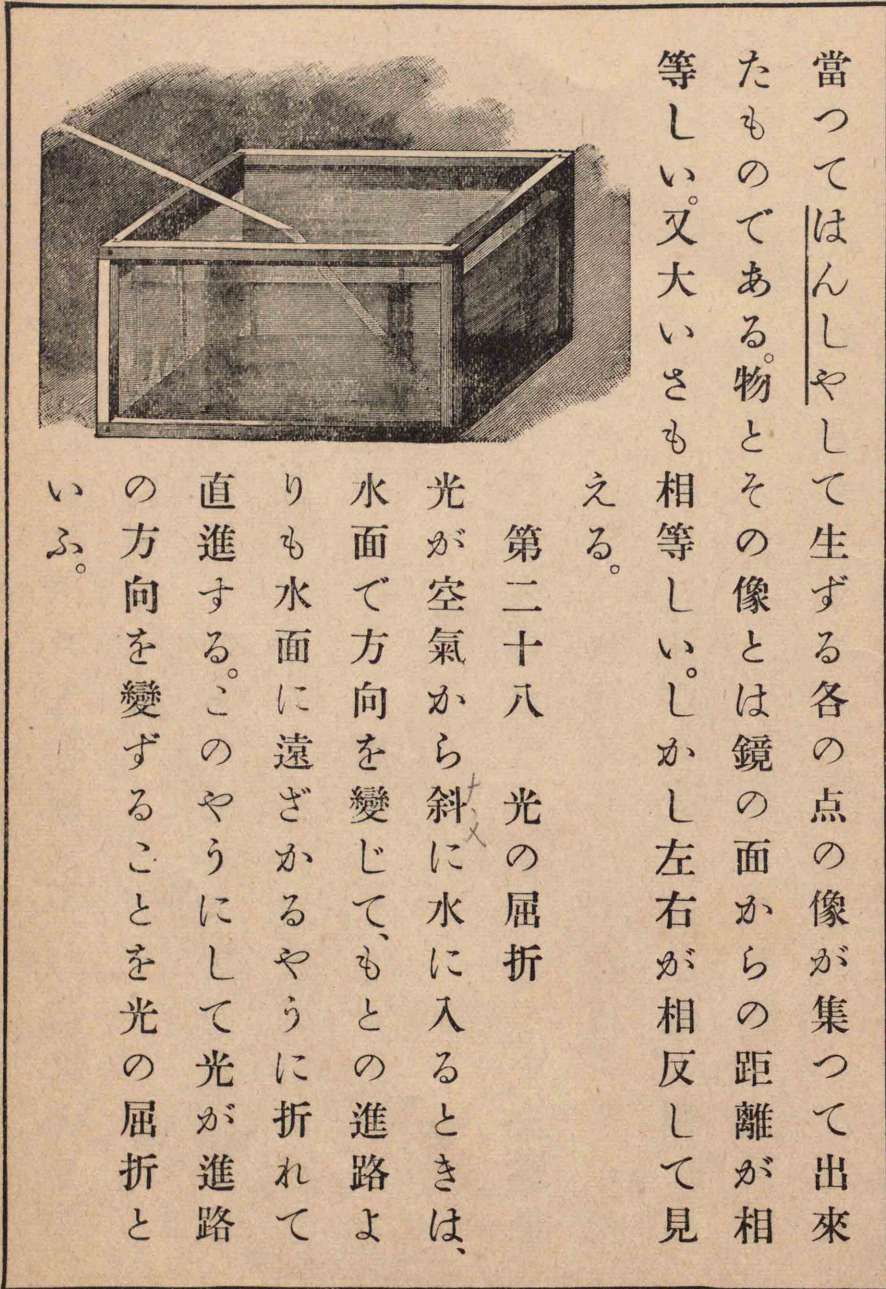 當つてはんしやして生ずる各の点の像が集つて出來
たものである。物とその像とは鏡の面からの距離が相
等しい。又大いさも相等しい。しかし左右が相反して見
える。
第二十八　光の屈折
光が空氣から斜に水に入るときは、
ナヽメ
水面で方向を變じて、もとの進路よ
りも水面に遠ざかるやうに折れて
直進する。このやうにして光が進路
の方向を變ずることを光の屈折と
いふ。